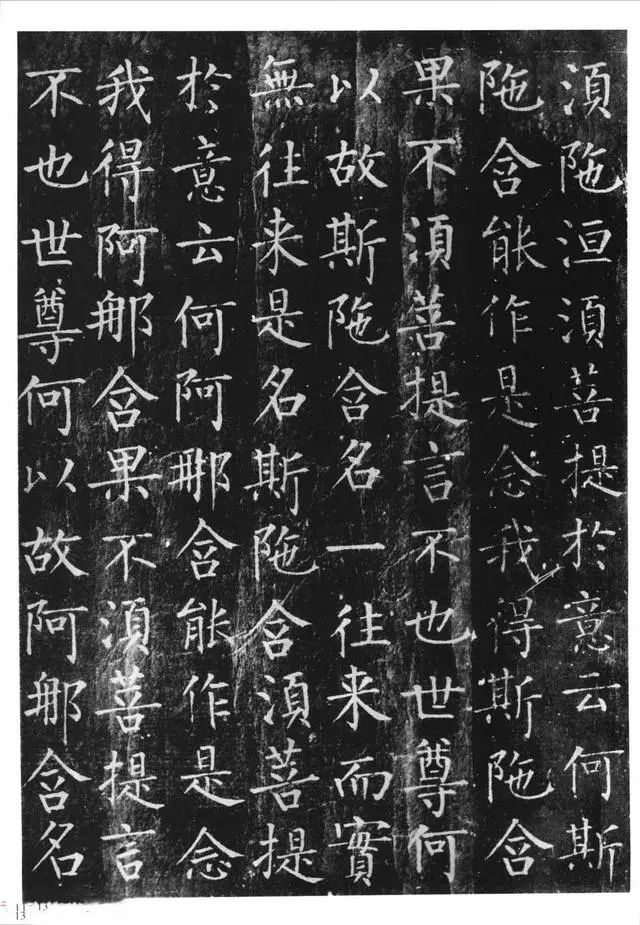 湏陁洹湏菩提於意云何斯
陁含能作是念我得斯陁含
果不湏菩提言不也世尊何
以故斯陁含名一往来而實
無往来是名斯陁含湏菩提
於意云何阿那含能作是念
我得阿那含果不湏菩提言
不也世尊何以故阿那含名
13